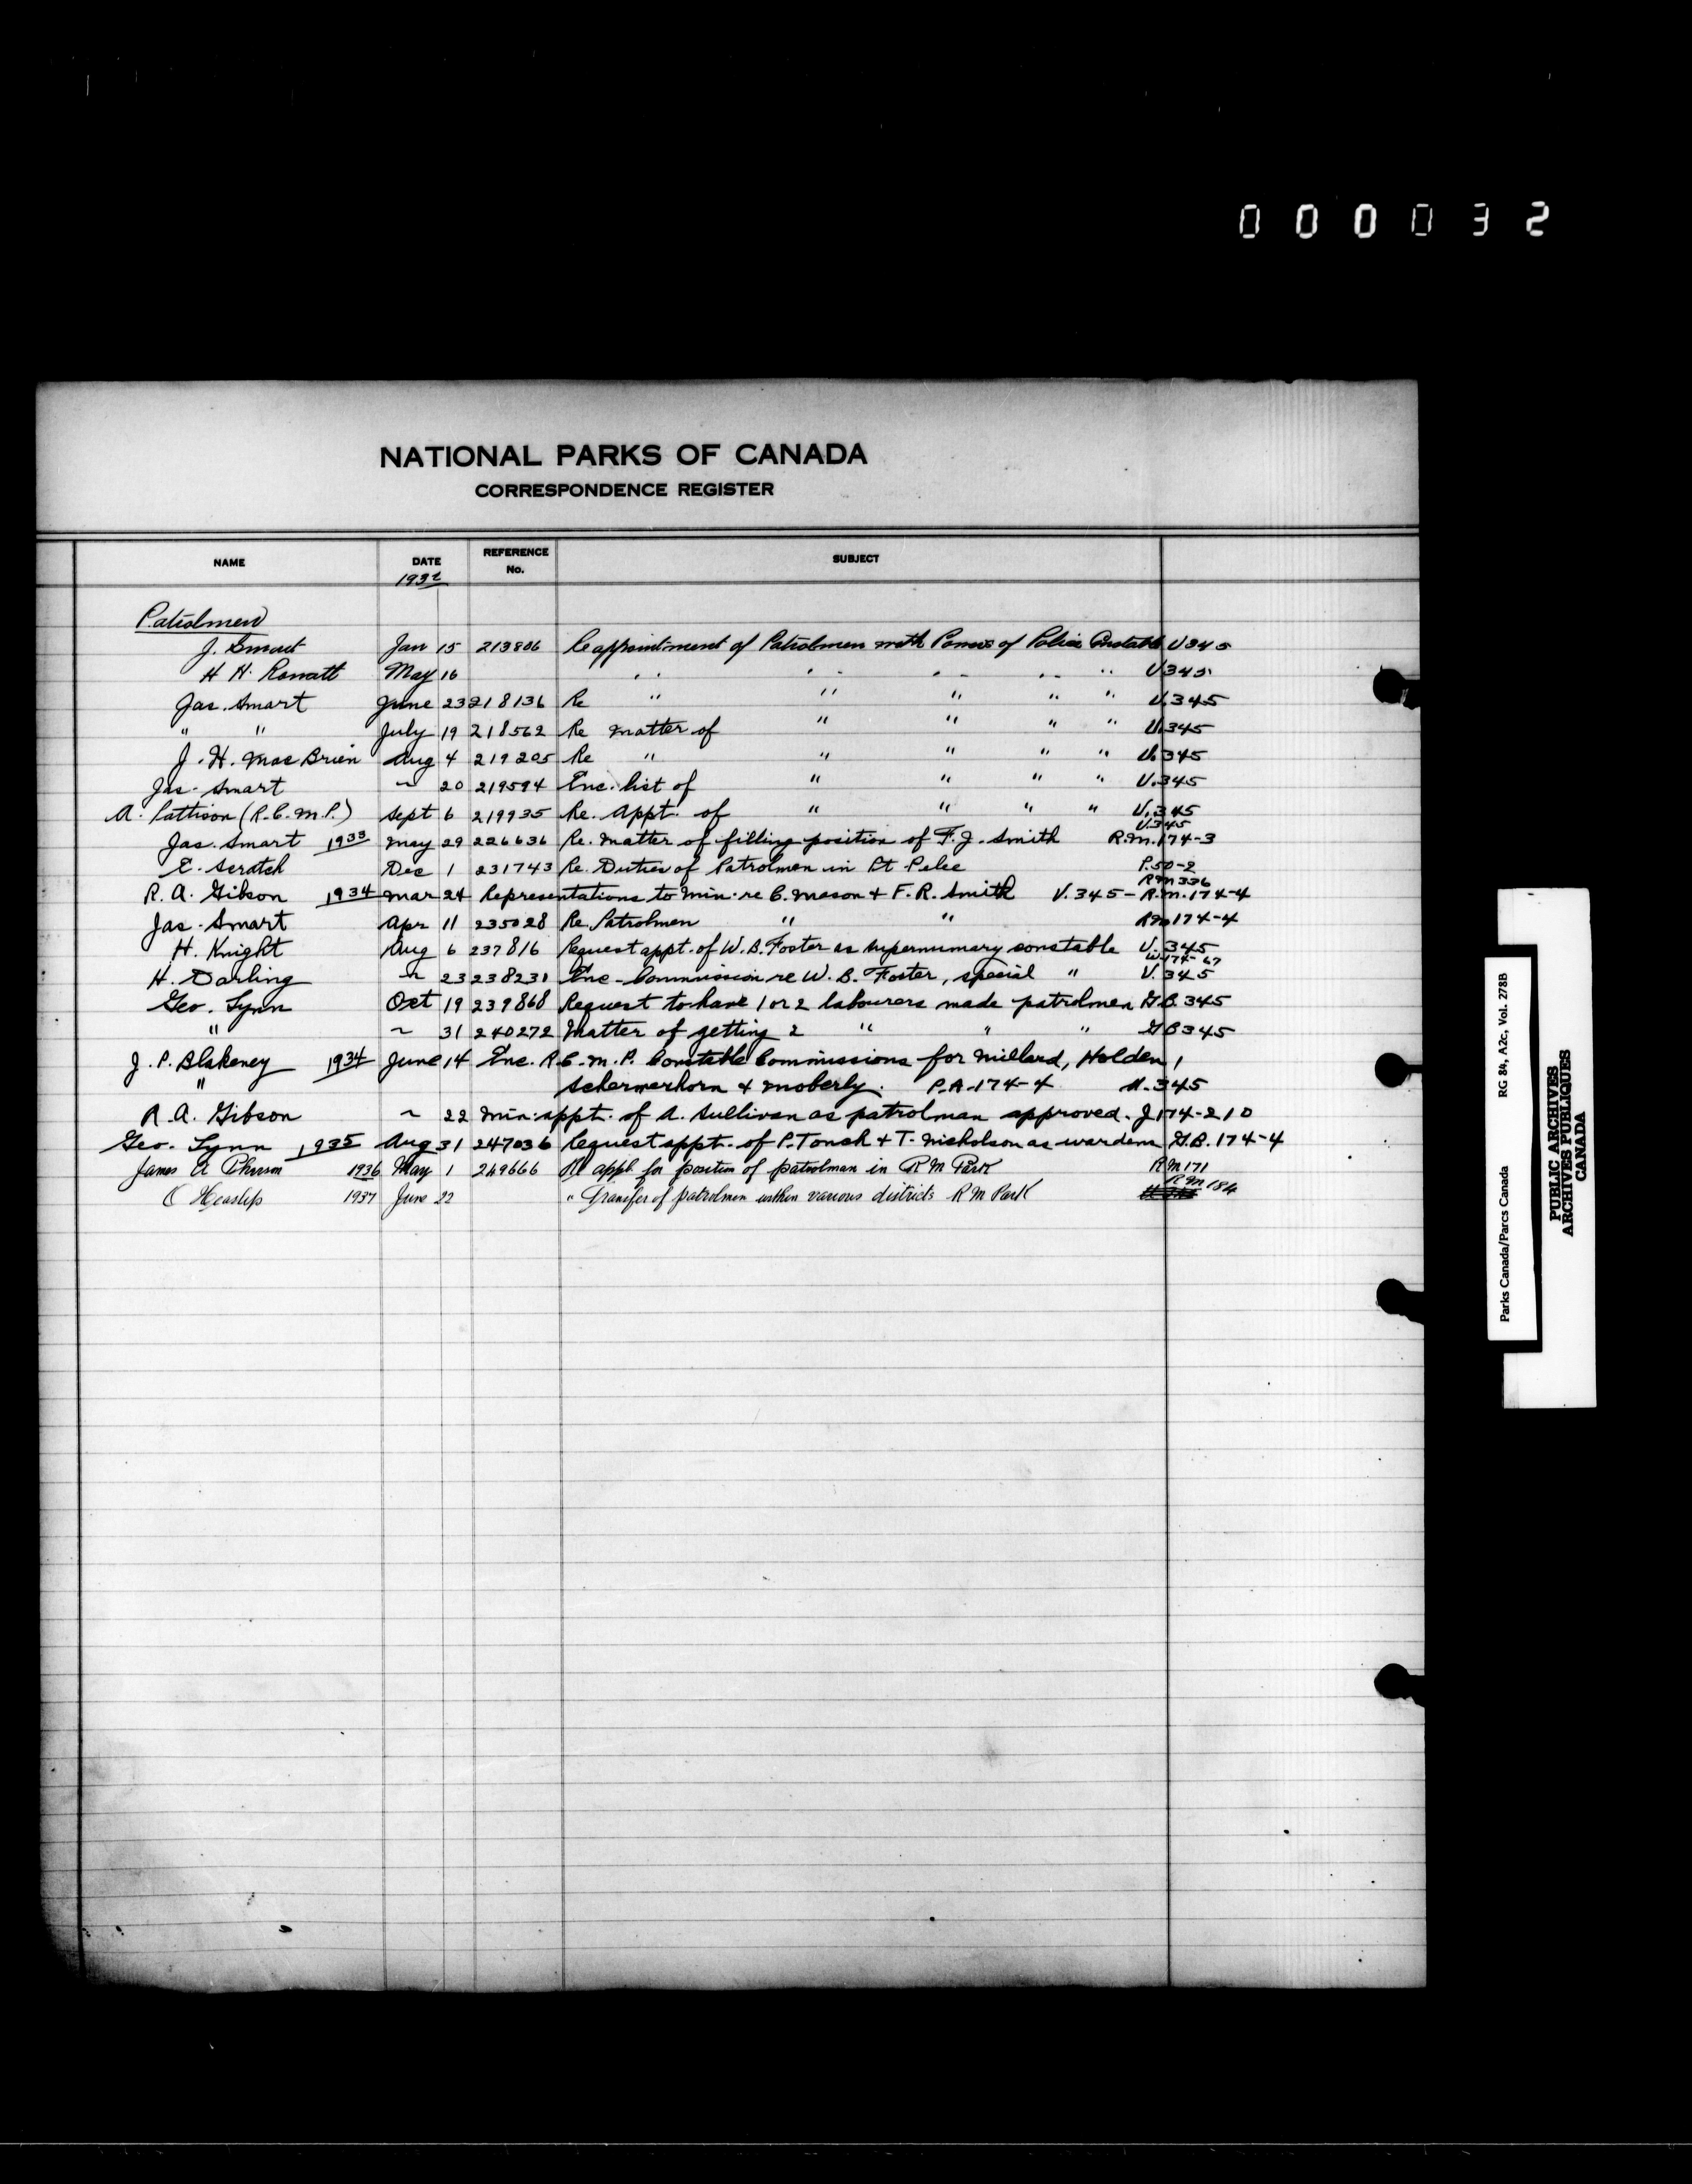 000032
NATIONAL PARKS OF CANADA
CORRESPONDENCE REGISTER
NAME DATE REFERENCE No. SUBJECT
1932
Patrolmen
J. Smart Jan 15 213806 Re appointment of Patrolmen with Powers of Police Constable V345
H H. Rowatt May 16 " " " " " V345
Jas. Smart June 23 218136 Re " " " " " V.345
" " July 19 218562 Re matter of " " " " V.345
J. H. MacBrien Aug 4 219205 Re " " " " " V.345
Jas. Smart ~ 20 219594 Enc. list of " " " " V.345
A. Pattison (R.C.M.P.) Sept 6 219935 Re. Appt. of " " " " V.345
V.345
Jas. Smart 1933 May 29 226636 Re. matter of filling position of F.J. Smith R.M.174-3
E. Scratch Dec 1 231743 Re. Duties of Patrolmen in Pt Pelee P.50-2
RM336
R. A. Gibson 1934 Mar 24 Representations to Min. re C. Mason + F. R. Smith V.345 - R.M.174-4
Jas. Smart Apr 11 235028 Re Patrolmen " " Rm174-4
H. Knight Aug 6 237816 Request appt. of W.B. Foster as supernumary constable V.345
W.174-67
H. Darling ~ 23 238231 Enc - Commission re W. B. Foster, special " V.345
Geo. Lynn Oct 19 239868 Request to have 1 or 2 labourers made patrolmen G.B.345
" ~ 31 240272 Matter of getting 2 " " " GB345
J. P. Blakeney 1934 June 14 Enc. R.C.M.P. Constable Commissions for Millard, Holden,
" Schermerhorn & Moberly. P.A.174-4 345
R. A. Gibson ~ 22 Min. appt. of A. Sullivan as patrolman approved. J174-210
Geo. Lynn 1935 Aug 31 247036 Request appt. of P. Tonch + T. Nicholson as wardens G.B.174-4
James A 1936 May 1 249666 Re appl. for position of patrolman in R M Park RM171
O Heaslip 1937 June 22 " Transfer of patrolmen within various districts R M Park RM184
Parks Canada/Parcs Canada RG 84, A2c, Vol. 278B
PUBLIC ARCHIVES
ARCHIVES PUBLIQUES
CANADA